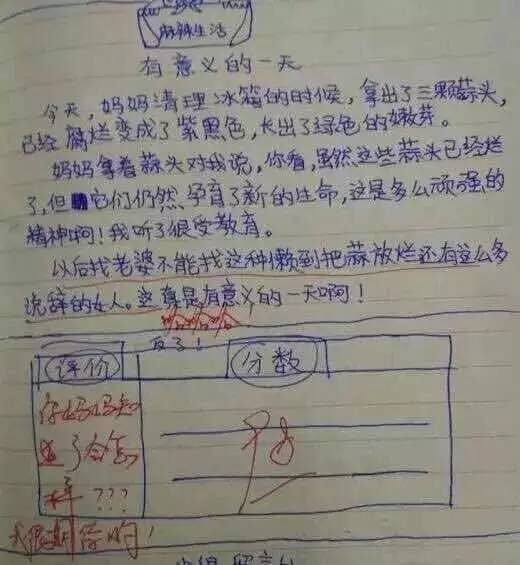 麻辣生活
有意义的一天
今天，妈妈清理冰箱的时候，拿出了三颗蒜头，
已经腐烂变成了紫黑色，长出了绿色的嫩芽。
妈妈拿着蒜头对我说，你看，虽然这些蒜头已经烂
了，但它们仍然孕育了新的生命，这是多么顽强的
精神啊！我听了很受教育。
以后找老婆不能找这种懒到把蒜放烂还有这么多
说辞的女人。这真是有意义的一天啊！
哈哈哈
反了！
评价
分数
你妈妈知
道了会怎
样???
我很期待哟！